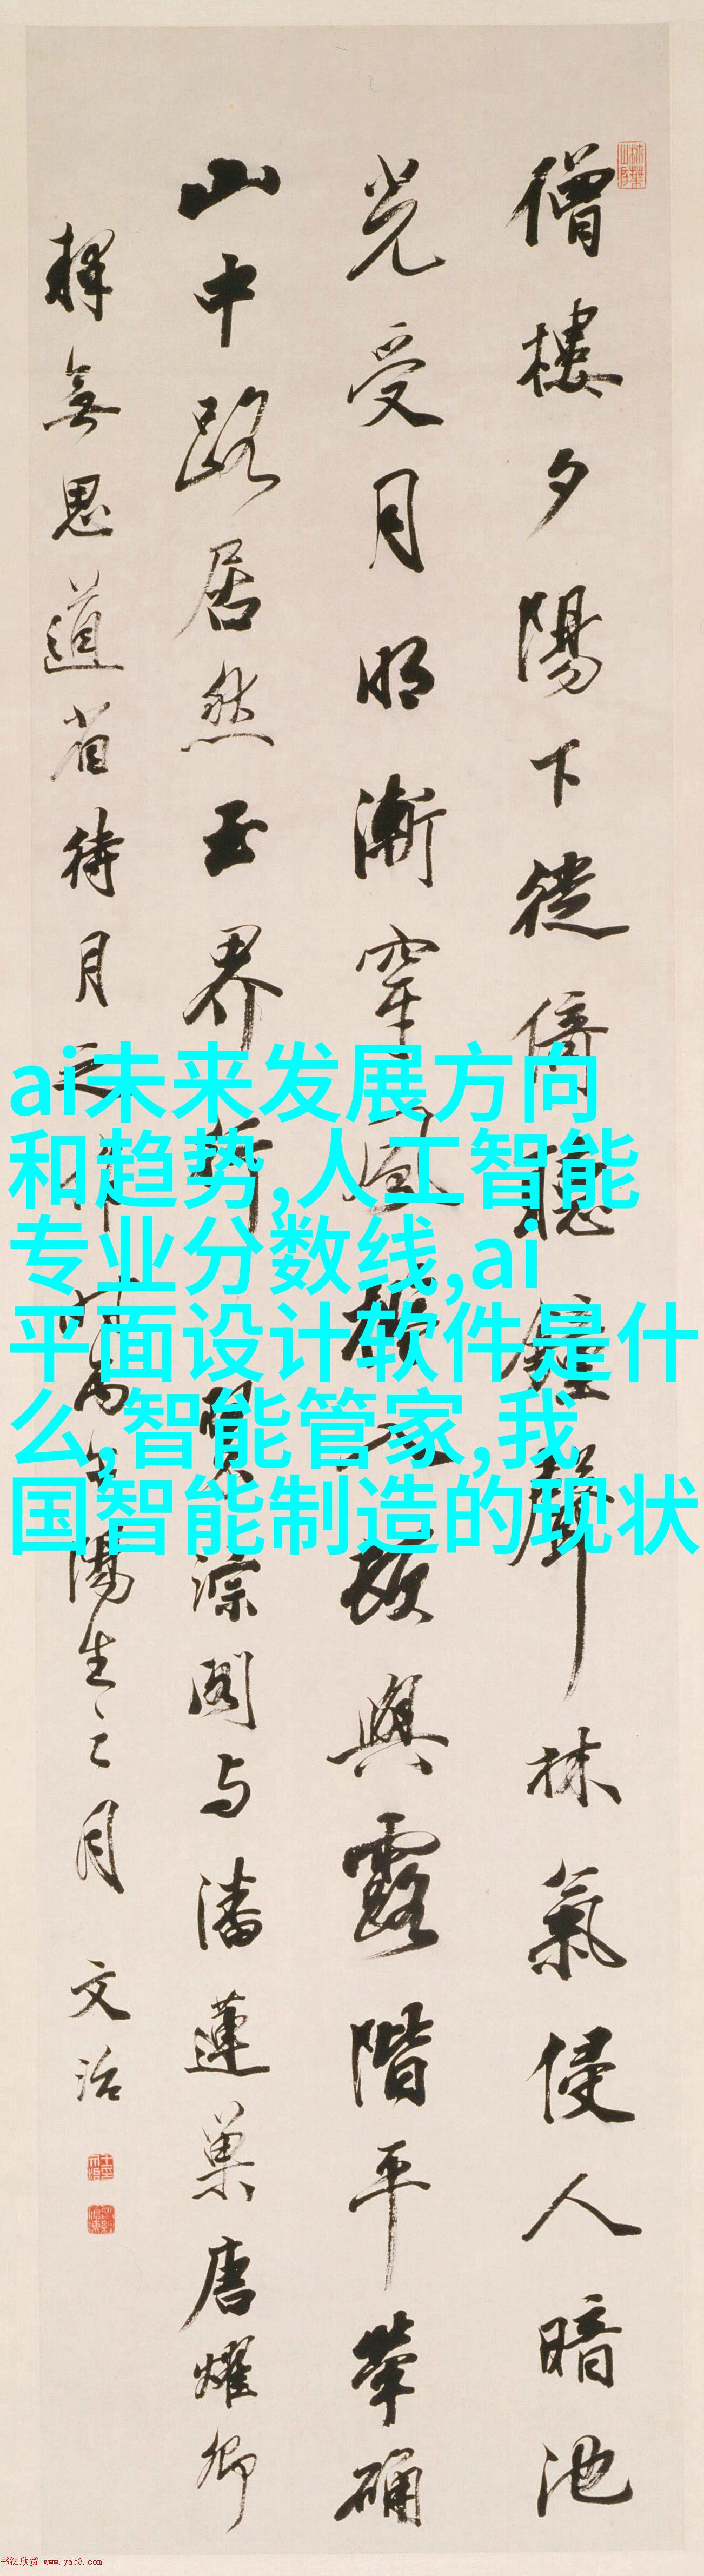 僧樓夕陽下徙倚聽鐘聲林氣侵人暗池
光受月明漸窄風
與露階平犖确
山中路居然玉界
淙閣与潘蓮巢唐耀卿
擇無思道省待月之作時
陽生之月 文治
ai未来发展方向
和趋势,人工智能
专业分数线,ai
平面设计软件是什
么,智能管家,我
国智能制造的现状
书法欣赏 www.yac8.com